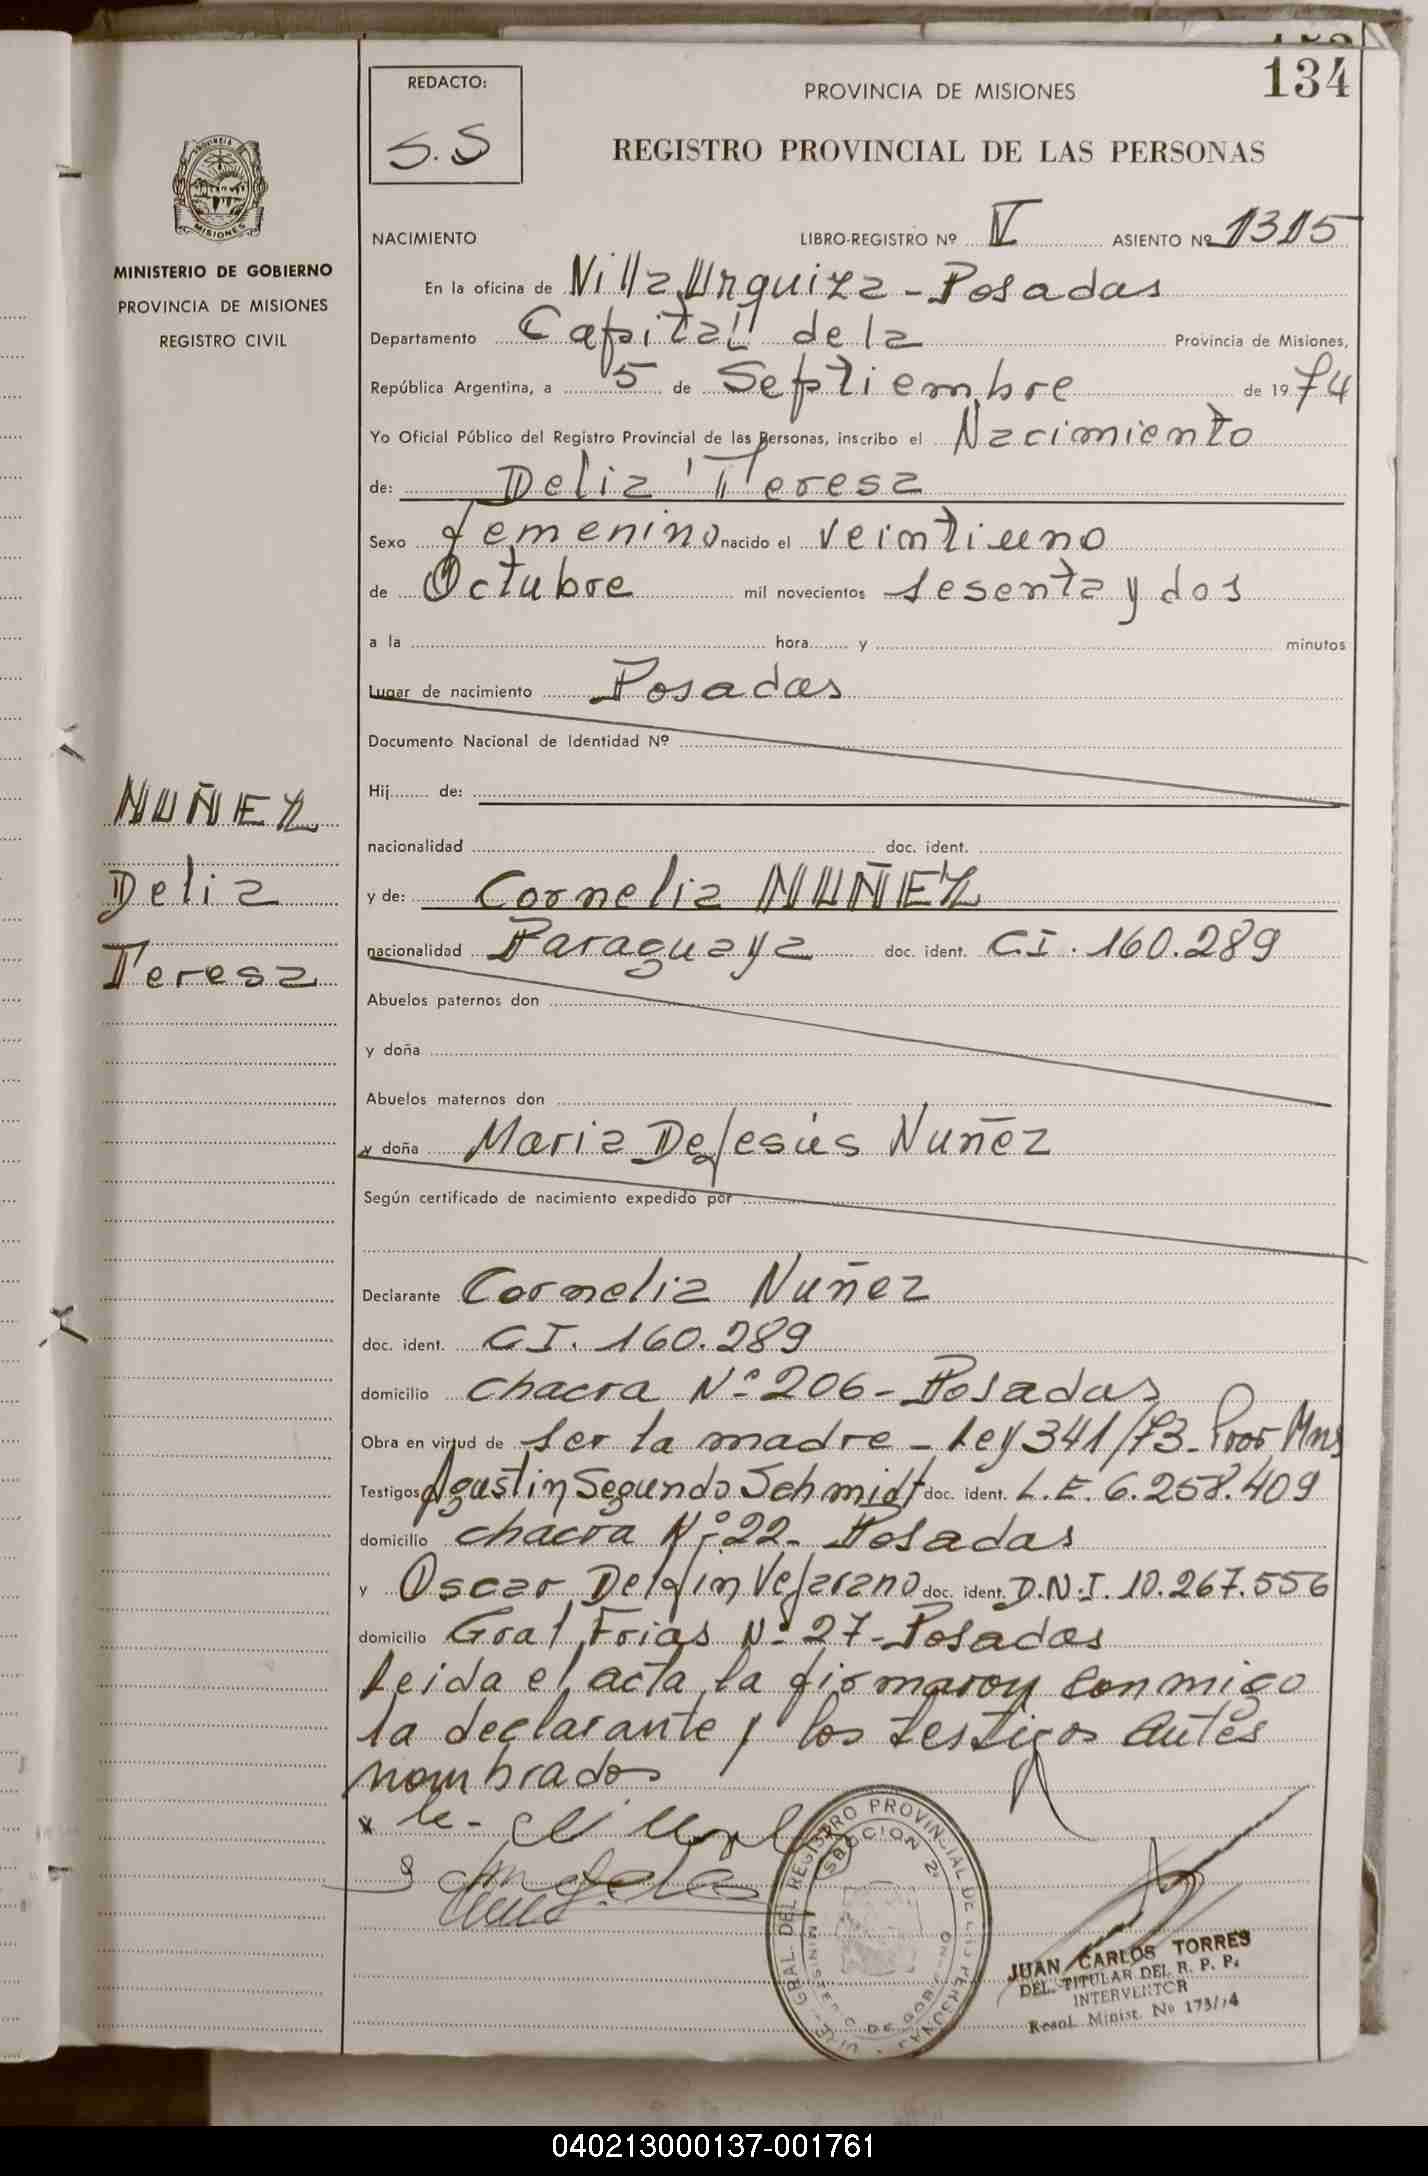 134
REDACTO:
S.S
PROVINCIA DE MISIONES
REGISTRO PROVINCIAL DE LAS PERSONAS
MISIONES
MINISTERIO DE GOBIERNO
PROVINCIA DE MISIONES
REGISTRO CIVIL
NUÑEZ
Delia
Teresa
NACIMIENTO LIBRO-REGISTRO Nº V ASIENTO Nº 1315
En la oficina de Villa Urquiza - Posadas
Departamento Capital de la Provincia de Misiones,
República Argentina, a 5 de Septiembre de 1974
Yo Oficial Público del Registro Provincial de las Personas, inscribo el Nacimiento
de: Delia Teresa
Sexo femenino nacido el veintiuno
de Octubre mil novecientos sesenta y dos
a la hora y minutos
Lugar de nacimiento Posadas
Documento Nacional de Identidad Nº
Hij de:
nacionalidad doc. ident.
y de: Cornelia NUÑEZ
nacionalidad Paraguaya doc. ident. CI. 160.289
Abuelos paternos don
y doña
Abuelos maternos don
y doña Maria De Jesús Nuñez
Según certificado de nacimiento expedido por
Declarante Cornelia Nuñez
doc. ident. CI. 160.289
domicilio chacra Nº 206 - Posadas
Obra en virtud de ser la madre - Ley 341/73 - Pror Mns
Testigos Agustin Segundo Schmidt doc. ident. L.E. 6.258.409
domicilio chacra Nº 22 - Posadas
y Oscar Delfin Vejarano doc. ident. D.N.I. 10.267.556
domicilio Gral Frias Nº 27 - Posadas
Leida el acta la firmaron conmigo
la declarante y los testigos antes
nombrados
REGISTRO PROVINCIAL DE LAS PERSONAS
SECCION 2
MINISTERIO DE GOBIERNO
JUAN CARLOS TORRES
DEL. TITULAR DEL R. P. P.
INTERVENTOR
Resol. Minist. No 173/74
040213000137-001761